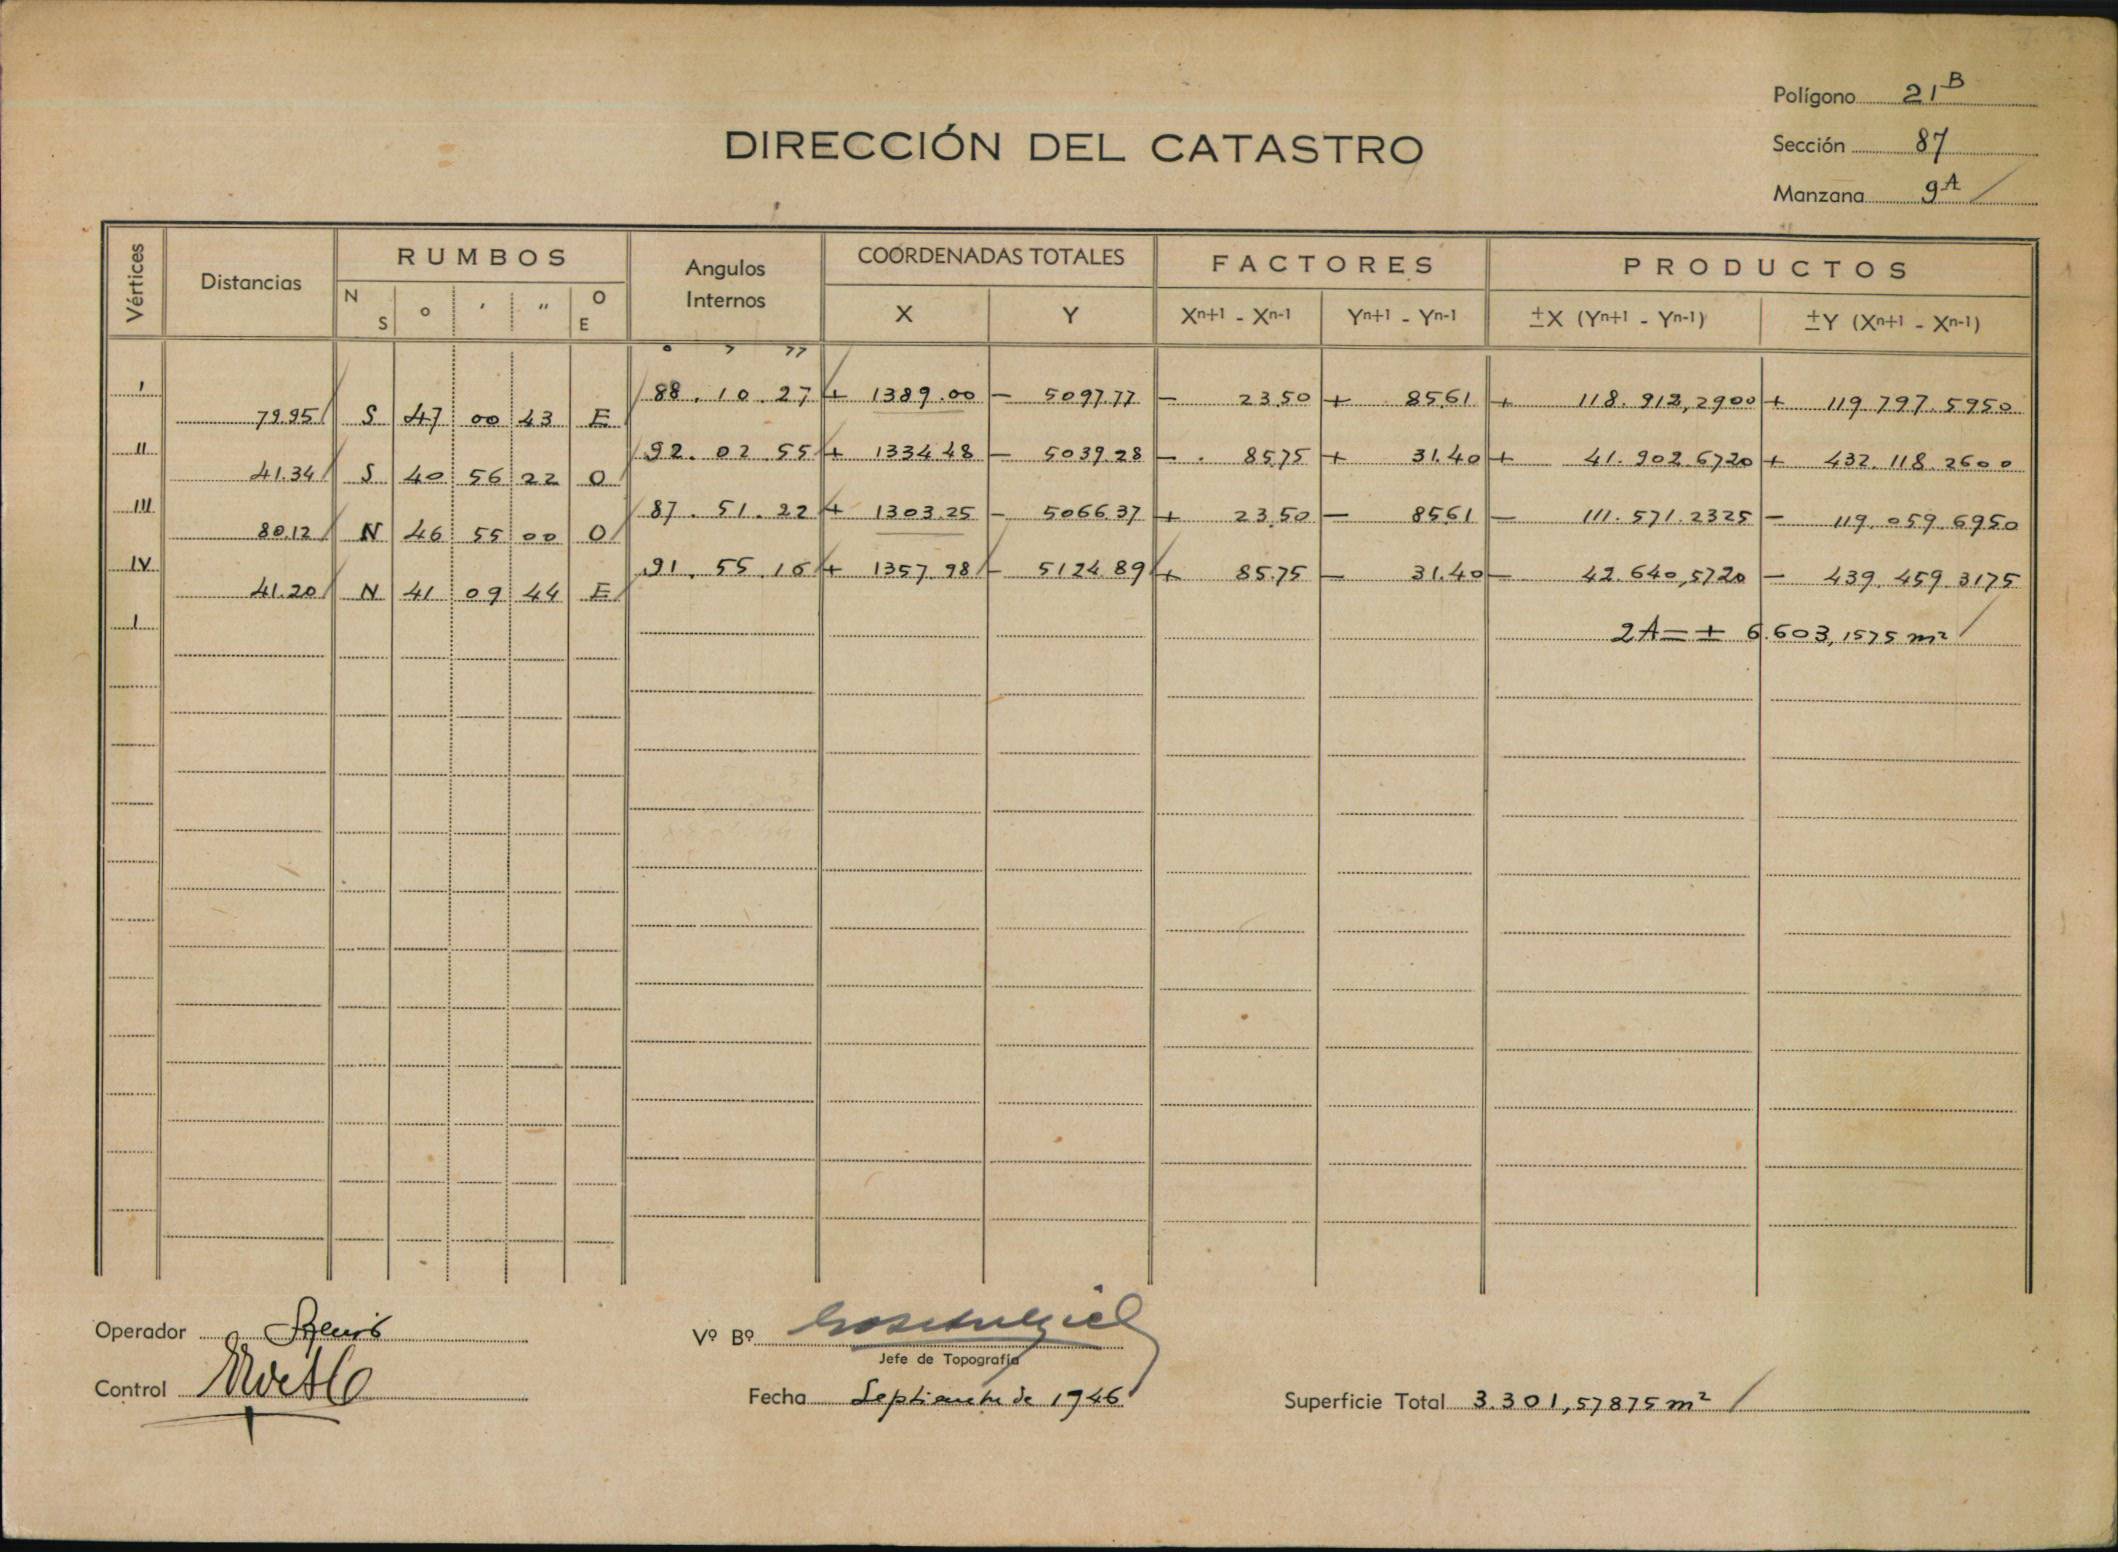 Polígono 21ᴮ
Sección 87
Manzana 9ᴬ
DIRECCIÓN DEL CATASTRO
Vértices Distancias RUMBOS Angulos Internos COORDENADAS TOTALES FACTORES PRODUCTOS
N S ° ' " O E X Y Xⁿ⁺¹ - Xⁿ⁻¹ Yⁿ⁺¹ - Yⁿ⁻¹ ±X (Yⁿ⁺¹ - Yⁿ⁻¹) ±Y (Xⁿ⁺¹ - Xⁿ⁻¹)
° ' "
I 88. 10. 27 + 1389.00 - 5097.77 - 23.50 + 85.61 + 118.912,2900 + 119.797.5950
79.95 S 47 00 43 E
II 92. 02 55 + 1334.48 - 5039.28 - 85.75 + 31.40 + 41.902.6720 + 432.118.2600
41.34 S 40 56 22 O
III 87. 51. 22 + 1303.25 - 5066.37 + 23.50 - 85.61 - 111.571.2325 - 119.059.6950
80.12 N 46 55 00 O
IV 91. 55. 16 + 1357.98 - 5124.89 + 85.75 - 31.40 - 42.640,5720 - 439.459.3175
41.20 N 41 09 44 E
I 2A = ± 6.603,1575 m²
Operador
Vº Bº
Jefe de Topografía
Control
Fecha Septiembre de 1946
Superficie Total 3.301,57875 m²